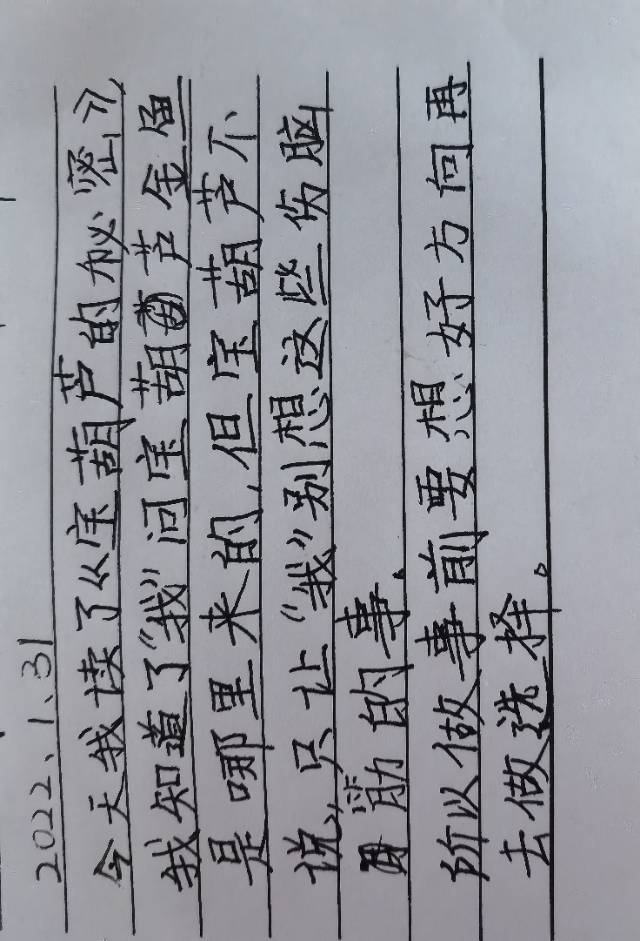 2022.1.31
今天我读了《宝葫芦的秘密》
我知道了“我”问宝葫芦金鱼
是哪里来的,但宝葫芦不
说,只让“我”别想这些伤脑
筋的事.
所以做事前要想好方向再
去做选择。